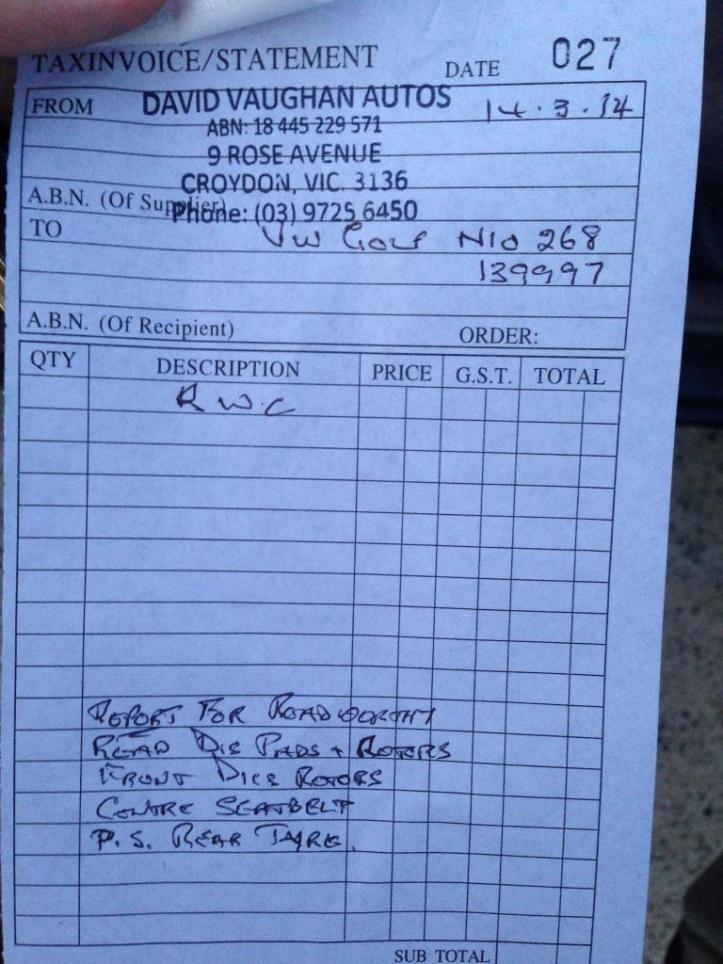 TAXINVOICE/STATEMENT DATE 027
FROM DAVID VAUGHAN AUTOS 14.3.14
ABN: 18 445 229 571
9 ROSE AVENUE
CROYDON, VIC. 3136
A.B.N. (Of Supplier) Phone: (03) 9725 6450
TO VW Golf N10 268
139997
A.B.N. (Of Recipient) ORDER:
QTY DESCRIPTION PRICE G.S.T. TOTAL
R.W.C
REPORT FOR ROADWORTHY
READ DIS PADS + ROTORS
FRONT DICS ROTORS
CENTRE SEATBELT
P.S. REAR TYRE.
SUB TOTAL